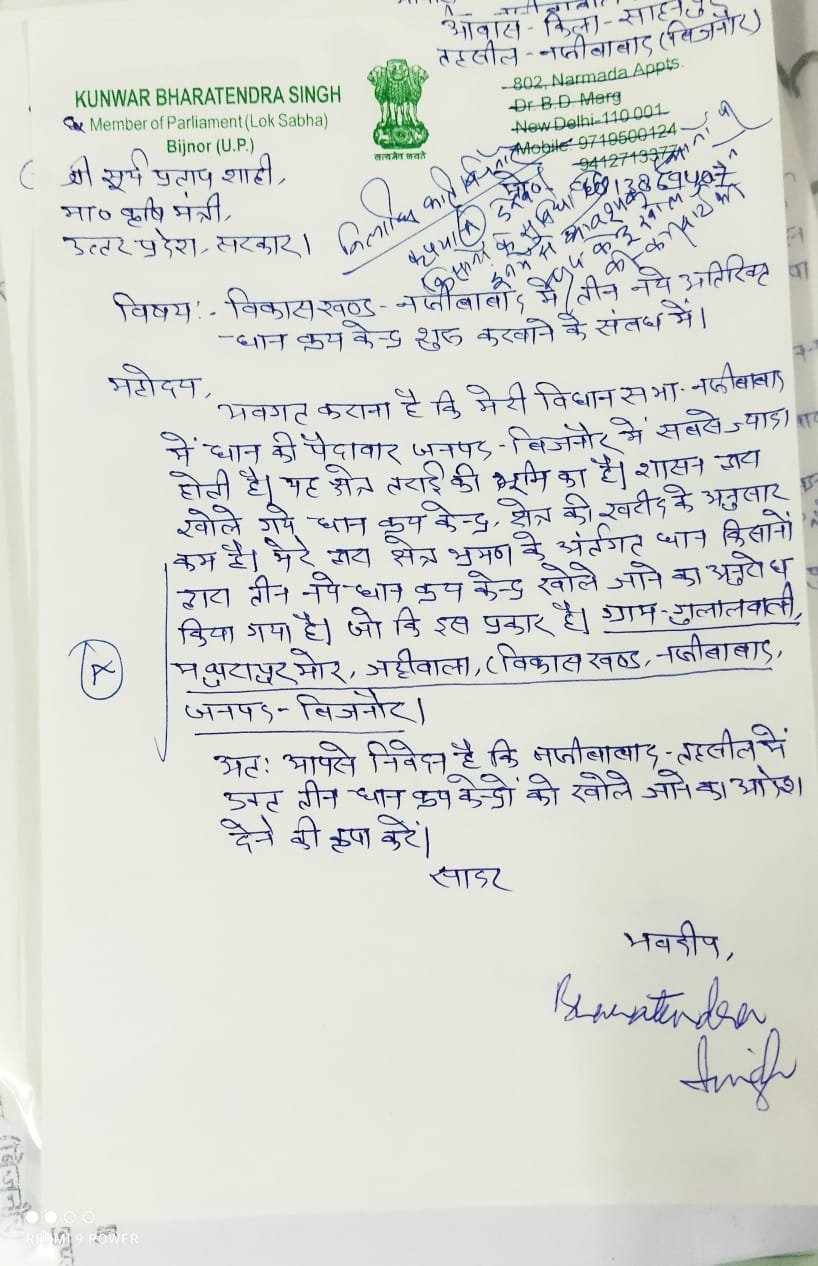 आवास - किला - साहनपुर
तहसील - नजीबाबाद (बिजनौर)
802, Narmada Appts.
Dr. B.D. Marg
New Delhi-110 001
Mobile: 9719500124
9412713377
KUNWAR BHARATENDRA SINGH
Ex Member of Parliament (Lok Sabha)
Bijnor (U.P.)
सत्यमेव जयते
श्री सूर्य प्रताप शाही,
मा० कृषि मंत्री,
उत्तर प्रदेश, सरकार।
जिलाधिकारी बिजनौर
विषय:- विकास खण्ड - नजीबाबाद में तीन नये अतिरिक्त
धान क्रय केन्द्र शुरू करवाने के संबध में।
महोदय,
अवगत कराना है कि मेरी विधान सभा - नजीबाबाद
में धान की पैदावार जनपद - बिजनौर में सबसे ज्यादा
होती है। यह क्षेत्र तराई की भूमि का है। शासन द्वारा
खोले गये धान क्रय केन्द्र, क्षेत्र की खरीद के अनुसार
कम है। मेरे द्वारा क्षेत्र भ्रमण के अंर्तगत धान किसानों
द्वारा तीन नये धान क्रय केन्द्र खोले जाने का अनुरोध
किया गया है। जो कि इस प्रकार है। ग्राम - गुलालवाली,
मथुरापुर मोर, जहीवाला, (विकास खण्ड, नजीबाबाद,
जनपद - बिजनौर।
अत: आपसे निवेदन है कि नजीबाबाद - तहसील में
उक्त तीन धान क्रय केन्द्रों को खोले जाने का आदेश
देने की कृपा करें।
सादर
भवदीय,
Bharatendra
Singh
REDMI 9 POWER